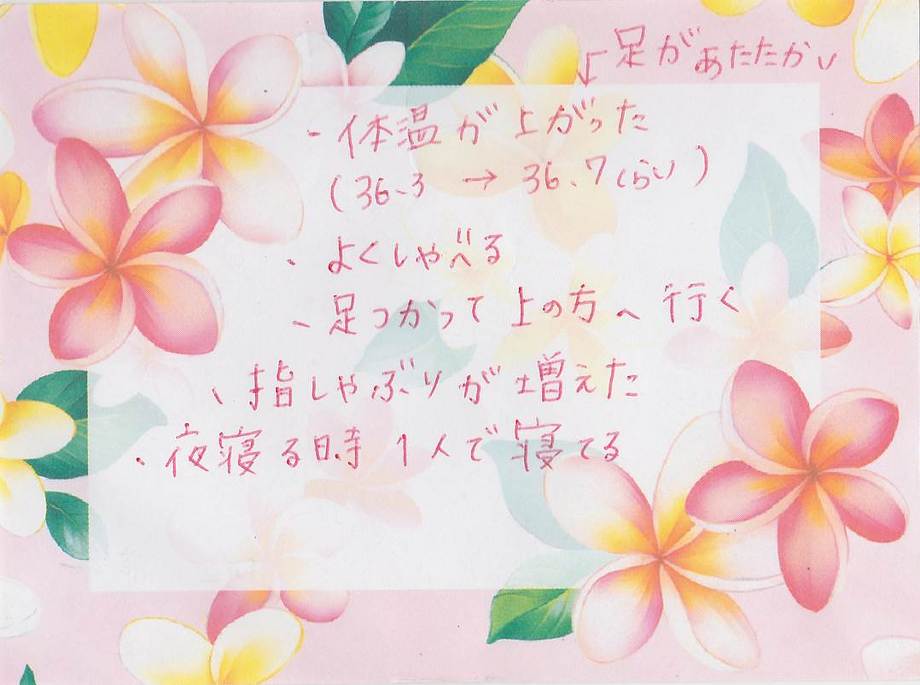 ↙足があたたかい
・体温が上がった
(36.3 → 36.7くらい)
・よくしゃべる
、足つかって上の方へ行く
、指しゃぶりが増えた
・夜寝る時1人で寝てる